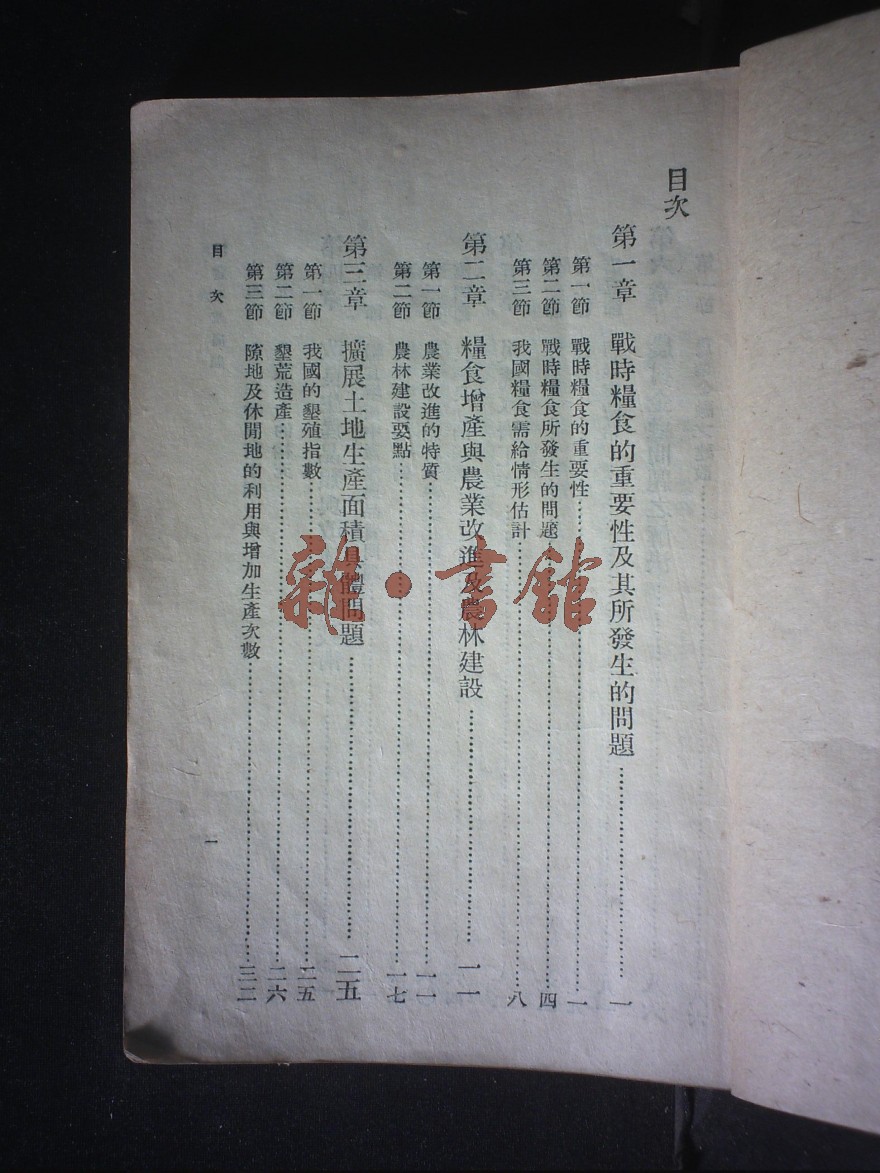 目次
第一章　戰時糧食的重要性及其所發生的問題…………一
第一節　戰時糧食的重要性…………一
第二節　戰時糧食所發生的問題…………四
第三節　我國糧食需給情形估計…………八
第二章　糧食增產與農業改進及農林建設…………一一
第一節　農業改進的特質…………一一
第二節　農林建設要點…………一七
第三章　擴展土地生產面積具體問題…………二五
第一節　我國的墾殖指數…………二五
第二節　墾荒造產…………二六
第三節　隙地及休閒地的利用與增加生產次數…………三二
目次　一
雜·書館